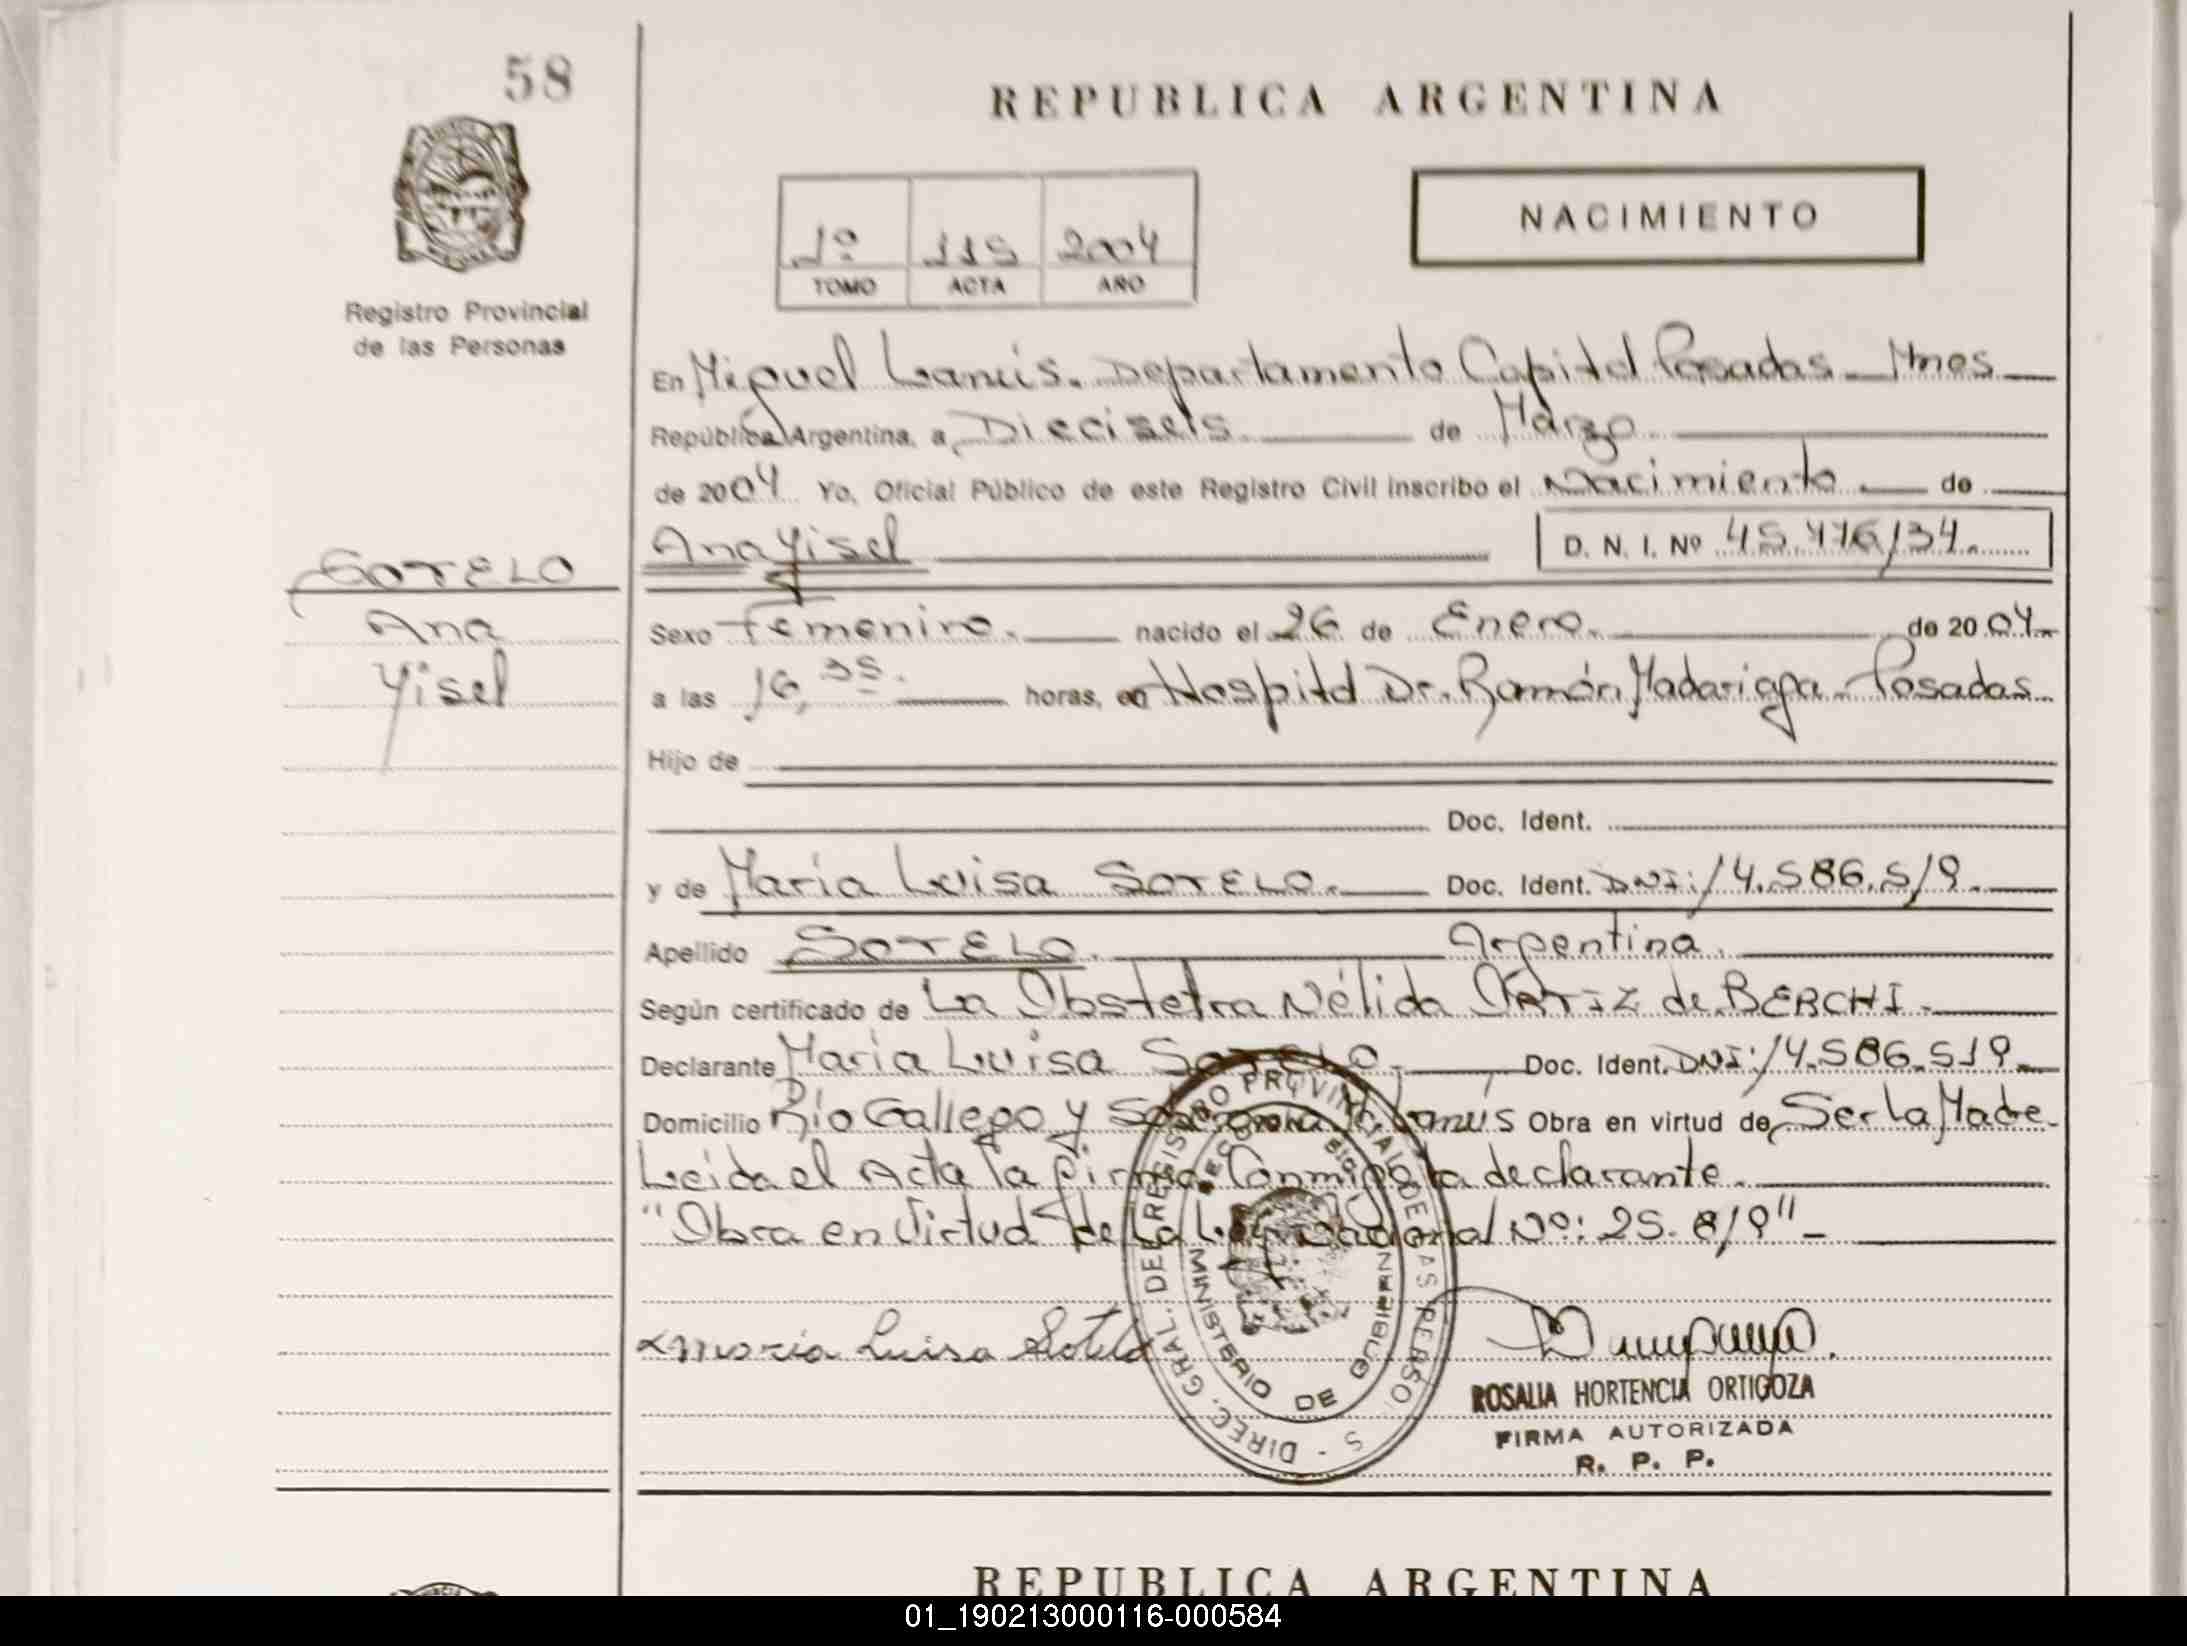 58
REPUBLICA ARGENTINA
Registro Provincial
de las Personas
1º 115 2004
TOMO ACTA AÑO
NACIMIENTO
En Miguel Lanús. Departamento Capital Posadas Mnes
República Argentina, a Dieciseis de Marzo
de 2004 Yo, Oficial Público de este Registro Civil inscribo el Nacimiento de
Ana Yisel D. N. I. Nº 45.446134.
SOTELO
Ana
Yisel
Sexo Femenino. nacido el 26 de Enero. de 2004
a las 16,35. horas, en Hospital Dr. Ramón Madariaga - Posadas
Hijo de
Doc. Ident.
y de María Luisa SOTELO. Doc. Ident. DNI: 14.586.519.
Apellido SOTELO. Argentina.
Según certificado de La Obstetra Nélida de BERCHI.
Declarante María Luisa SOTELO. Doc. Ident. DNI: 14.586.519
Domicilio Río Gallego y Lanús Obra en virtud de Ser la Madre
Leida el Acta la firma Conmigo la declarante.
"Obra en Virtud de la Ley Nacional Nº: 25.819"
Maria Luisa Sotelo
DIREC. GRAL. DEL REGISTRO PROVINCIAL DE LAS PERSONAS
MINISTERIO DE GOBIERNO
ROSALIA HORTENCIA ORTIGOZA
FIRMA AUTORIZADA
R. P. P.
REPUBLICA ARGENTINA
01_190213000116-000584